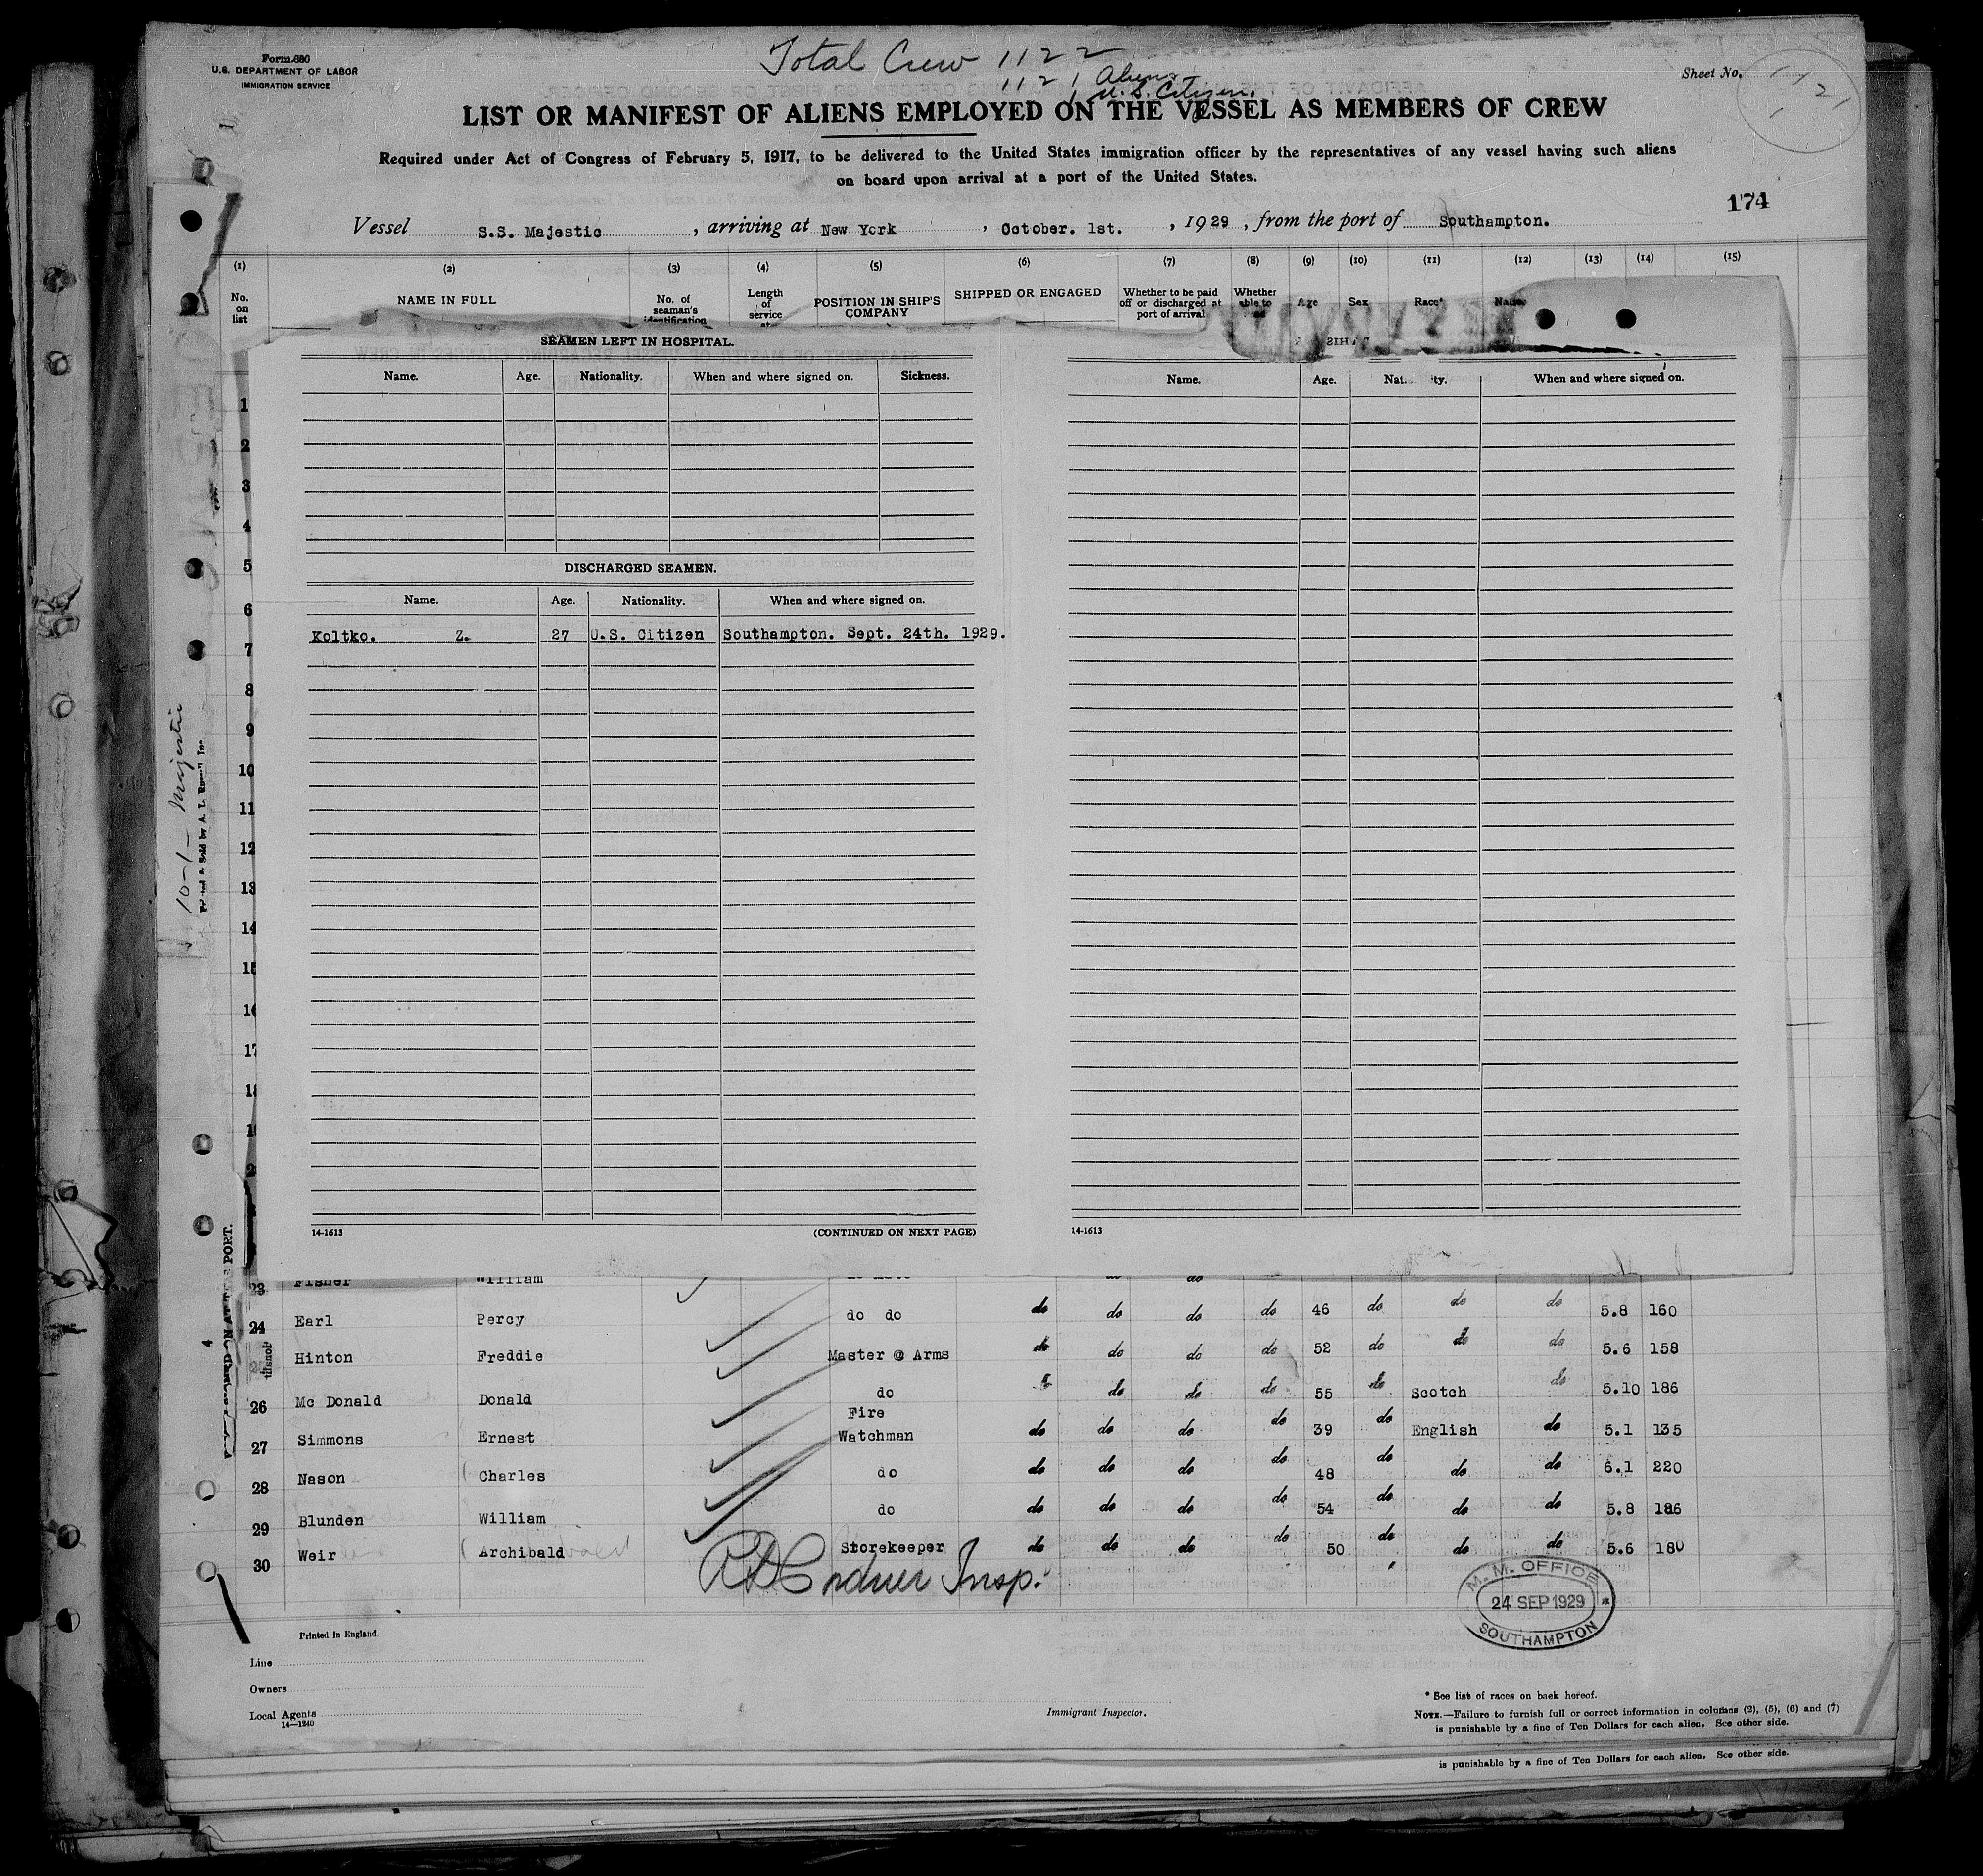 Form 680
U.S. DEPARTMENT OF LABOR
IMMIGRATION SERVICE
Total Crew 1122
1121 Aliens
1 U.S. Citizen.
Sheet No. 2
LIST OR MANIFEST OF ALIENS EMPLOYED ON THE VESSEL AS MEMBERS OF CREW
Required under Act of Congress of February 5, 1917, to be delivered to the United States immigration officer by the representatives of any vessel having such aliens
on board upon arrival at a port of the United States.
174
Vessel S.S. Majestic, arriving at New York, October. 1st., 1929, from the port of Southampton.
(1) (2) (3) (4) (5) (6) (7) (8) (9) (10) (11) (12) (13) (14) (15)
No. on list
NAME IN FULL
No. of seaman's identification
Length of service at
POSITION IN SHIP'S COMPANY
SHIPPED OR ENGAGED
Whether to be paid off or discharged at port of arrival
Whether able to
Age
Sex
Race*
SEAMEN LEFT IN HOSPITAL.
Name. Age. Nationality. When and where signed on. Sickness.
DISCHARGED SEAMEN.
Name. Age. Nationality. When and where signed on.
Koltko. Z. 27 U.S. Citizen Southampton. Sept. 24th. 1929.
14-1613 (CONTINUED ON NEXT PAGE)
Name. Age. When and where signed on.
14-1613
1
2
3
4
5
6
7
8
9
10
11
12
13
14
15
16
17
18
10-1- Majestic
23 Fisher William do
24 Earl Percy do do do do do do 46 do do do 5.8 160
Hinton Freddie Master @ Arms do do do do 52 do do do 5.6 158
26 Mc Donald Donald do do do do 55 do Scotch do 5.10 186
27 Simmons Ernest Fire Watchman do do do do 39 do English do 5.1 135
28 Nason Charles do do do do do 48 do do do 6.1 220
29 Blunden William do do do do do 54 do do do 5.8 186
30 Weir Archibald Storekeeper do do do do 50 do do do 5.6 180
Insp.
M. M. OFFICE
24 SEP 1929
SOUTHAMPTON
Printed in England.
Line
Owners
Local Agents
14-1240
Immigrant Inspector.
* See list of races on back hereof.
NOTE.—Failure to furnish full or correct information in columns (2), (5), (6) and (7)
is punishable by a fine of Ten Dollars for each alien. See other side.
is punishable by a fine of Ten Dollars for each alien. See other side.